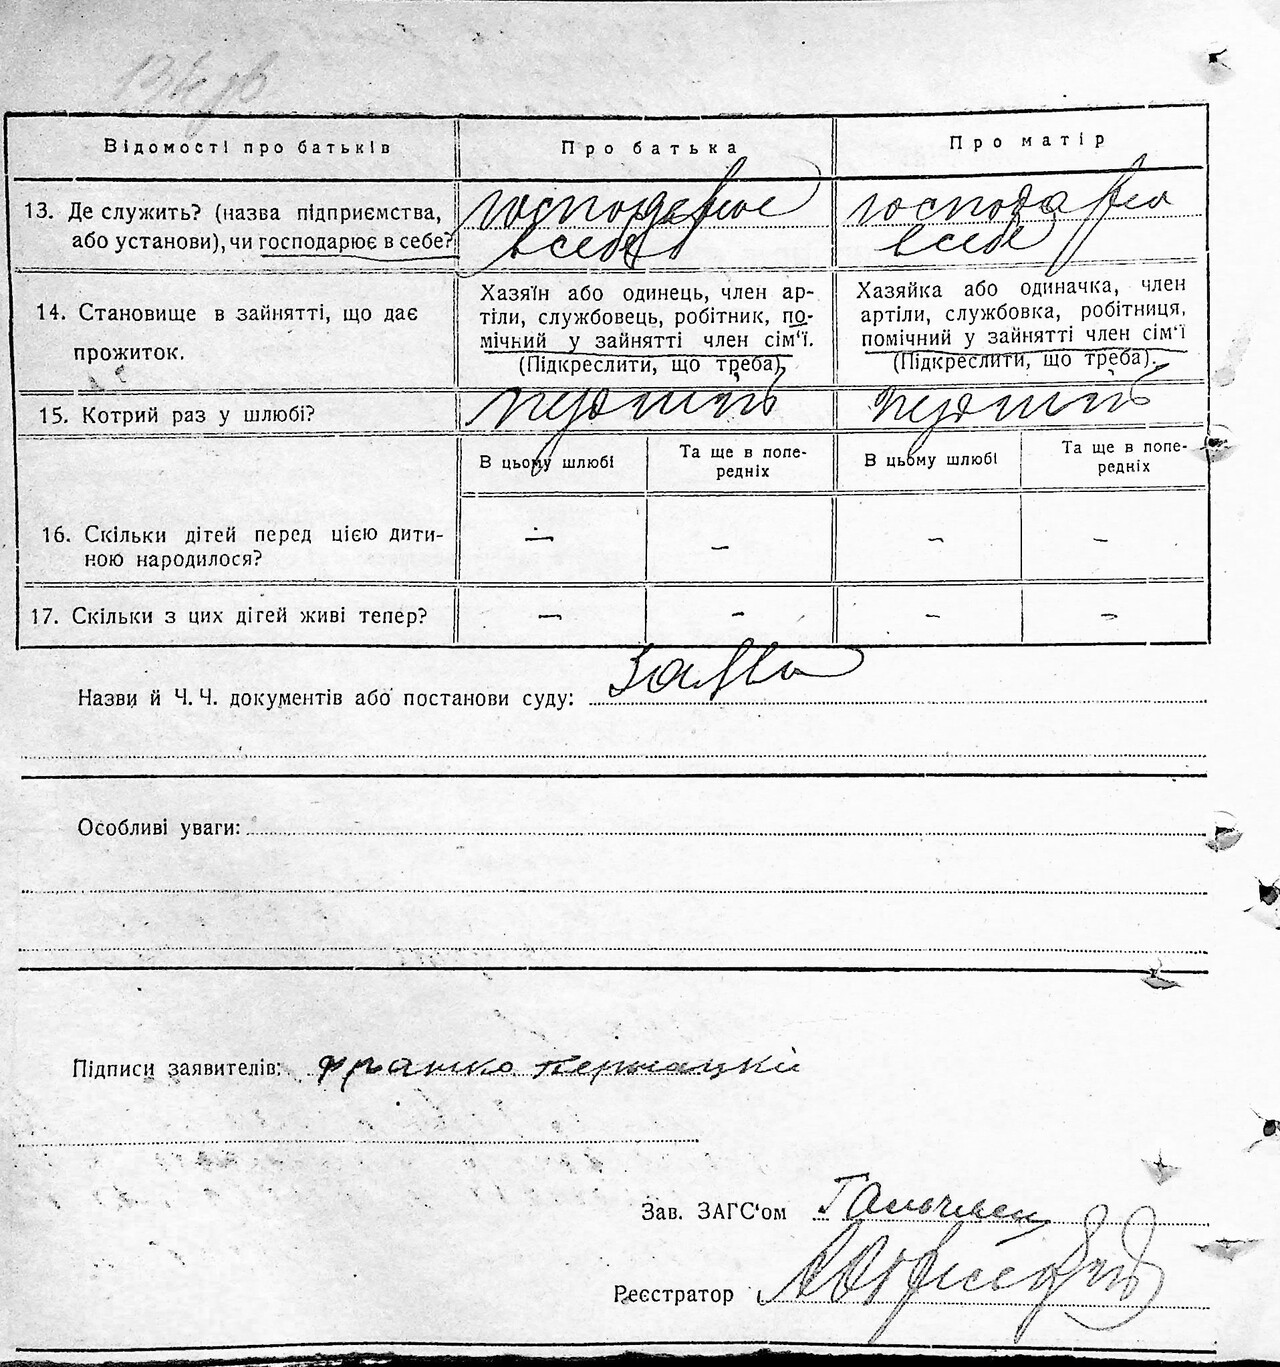 Відомості про батьків
Про батька
Про матір
13. Де служить? (назва підприємства,
або установи), чи господарює в себе?
господарює
в себе
господарює
в себе
14. Становище в зайнятті, що дає
прожиток.
Хазяїн або одинець, член ар-
тіли, службовець, робітник, по-
мічний у зайнятті член сім'ї.
(Підкреслити, що треба).
Хазяйка або одиначка, член
артіли, службовка, робітниця,
помічний у зайнятті член сім'ї
(Підкреслити, що треба).
15. Котрий раз у шлюбі?
В цьому шлюбі
Та ще в попе-
редніх
В цьому шлюбі
Та ще в попе-
редніх
16. Скільки дітей перед цією дити-
ною народилося?
— — — —
17. Скільки з цих дітей живі тепер?
— — — —
Назви й Ч. Ч. документів або постанови суду:
Особливі уваги:
Підписи заявителів: Франко
Зав. ЗАГС'ом
Реєстратор